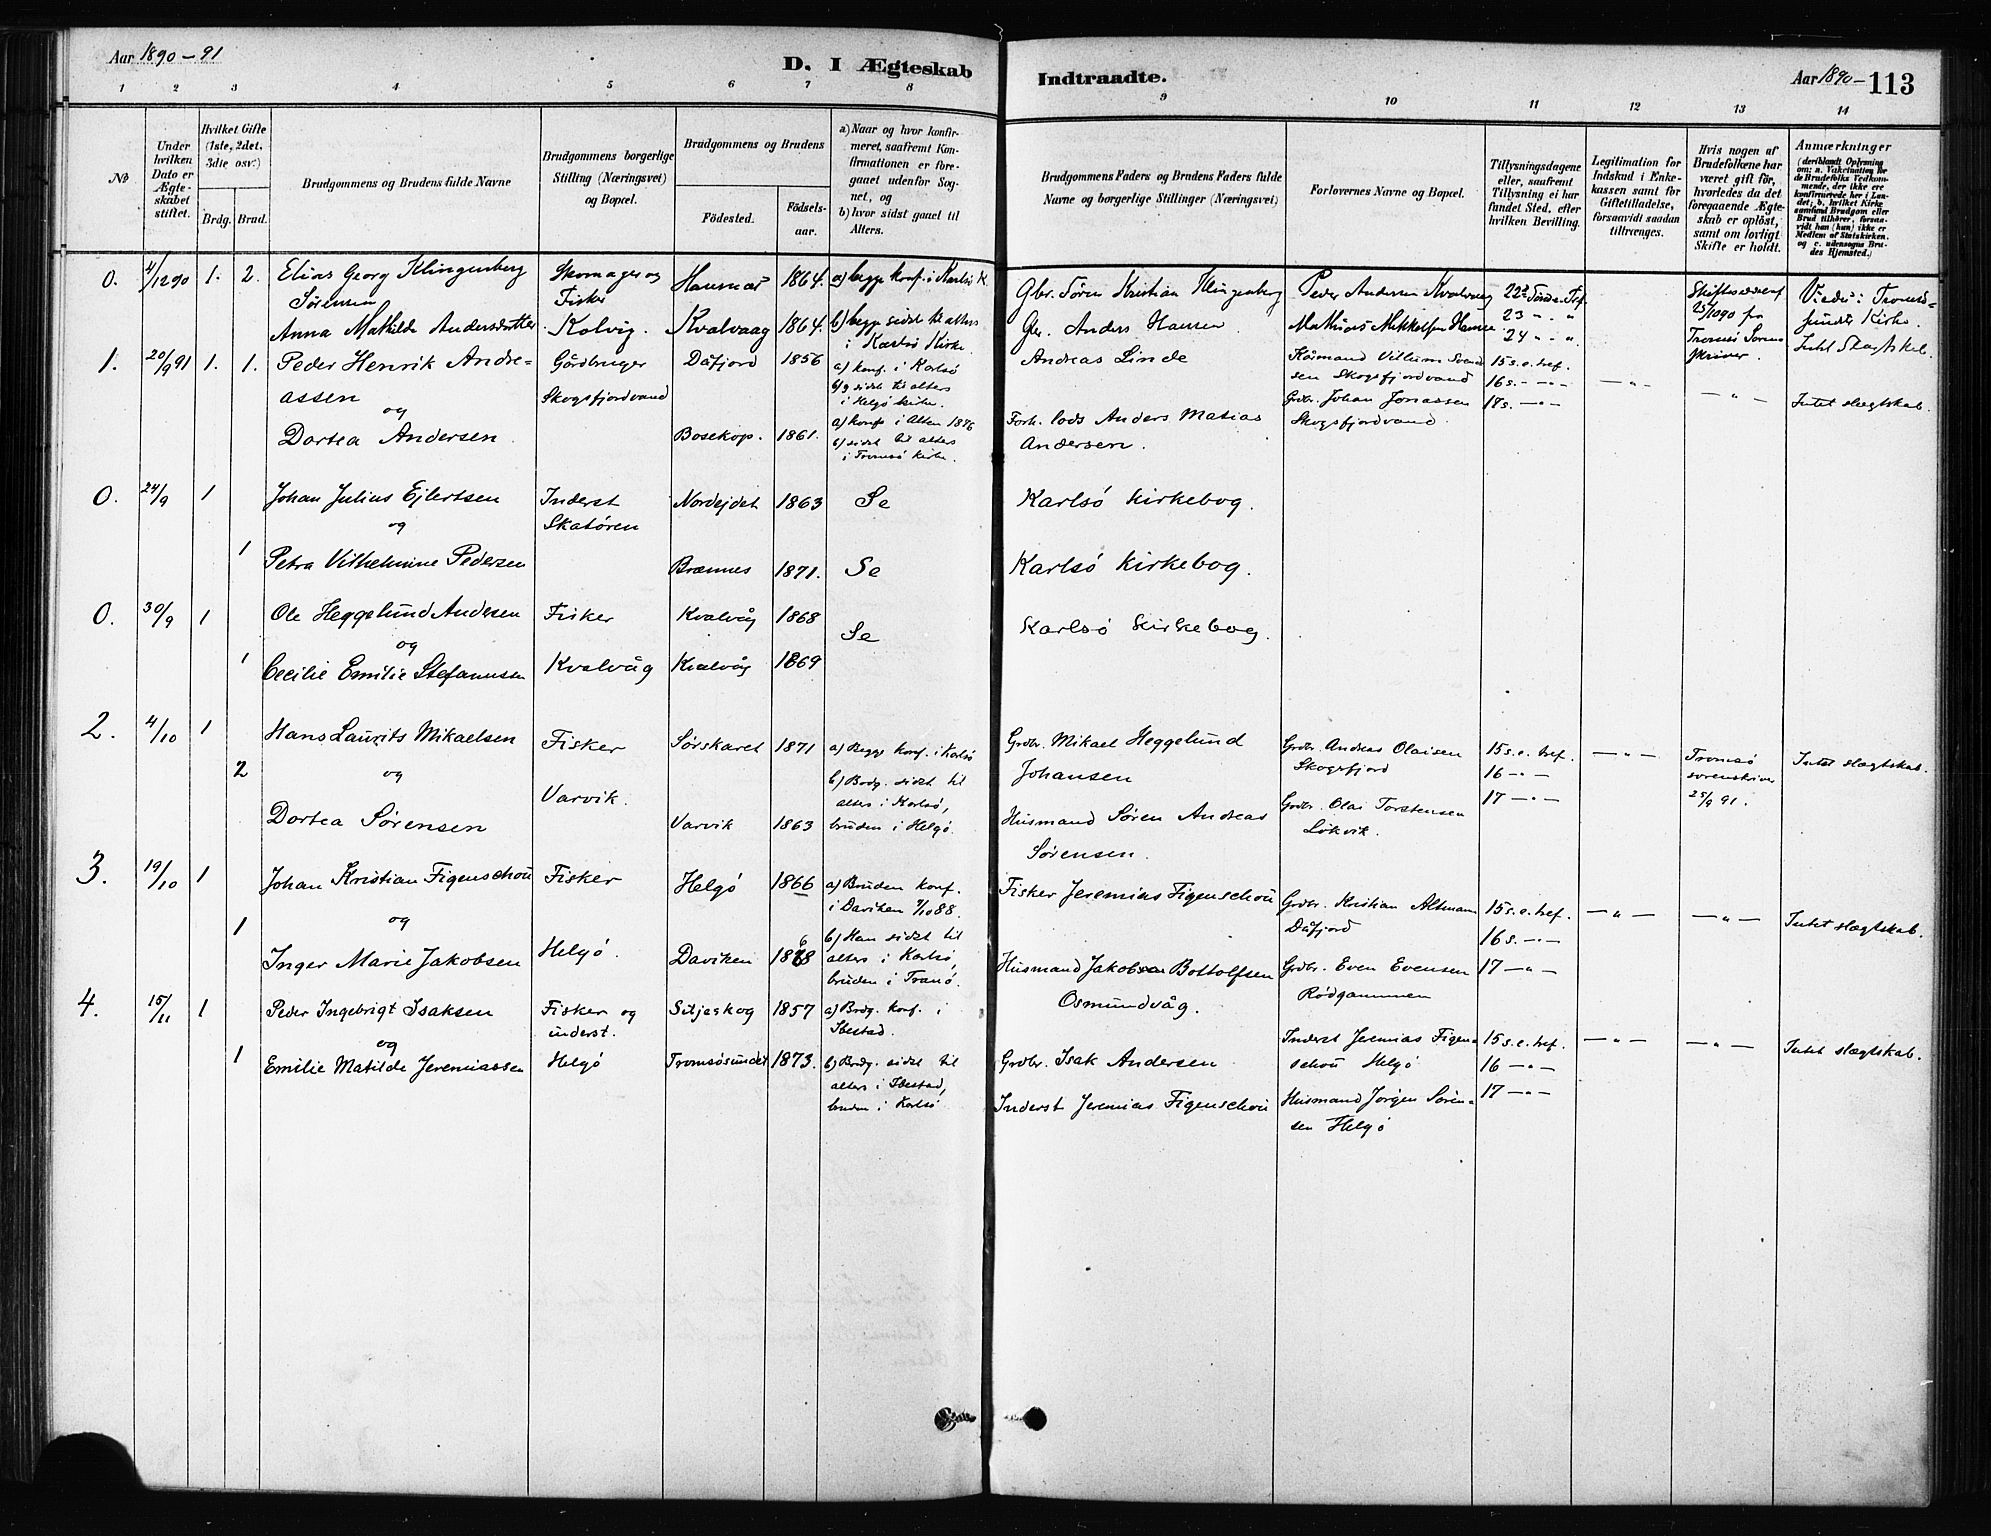 Aar 1890-91
D. I Ægteskab
Indtraadte.
Aar 1890- 113
1 2 3 4 5 6 7 8 9 10 11 12 13 14
№
Under hvilken Dato er Ægteskabet stiftet.
Hvilket Gifte (1ste, 2det, 3die osv.)
Brdg. Brud.
Brudgommens og Brudens fulde Navne
Brudgommens borgerlige Stilling (Næringsvei) og Bopæl.
Brudgommens og Brudens
Födested.
Födsels-aar.
a) Naar og hvor konfirmeret, saafremt Konfirmationen er foregaaet udenfor Sognet, og
b) hvor sidst gaaet til Alters.
Brudgommens Faders og Brudens Faders fulde Navne og borgerlige Stillinger (Næringsvei)
Forlovernes Navne og Bopæl.
Tillysningsdagene eller, saafremt Tillysning ei har fundet Sted, efter hvilken Bevilling.
Legitimation for Indskud i Enkekassen samt for Giftetilladelse, forsaavidt saadan tiltrænges.
Hvis nogen af Brudefolkene har været gift för, hvorledes da det foregaaende Ægteskab er oplöst, samt om lovligt Skifte er holdt.
Anmærkninger
(deriblandt Oplysning om: a. Vakcination for de Brudefolks Vedkommende, der ikke ere konfirmerede her i Landet; b. hvilket Kirkesamfund Brudgom eller Brud tilhörer, forsaavidt han (hun) ikke er Medlem af Statskirken, og c. udensogns Brudes Hjemsted.)
0. 4/12 90 1. 2. Elias Georg Klingenberg Sørensen
Skomager og Fisker
1864. a) begge konf. i Karlsö K.
Gbr. Sören Kristian Klingenberg
Peder Andersen Kvalvaag
22
25/10 90 fra
Kirke.
Anna Mathilde Andersdatter
Kolvig. Kvalvaag 1864. b) begge sidst til alters i Karlsö Kirke.
Gbr. Anders Hansen
23 " "
24 " "
1. 20/9 91 1. 1. Peder Henrik Andreassen
og
Dortea Andersen
Gårdbruger
Skogsfjordvand
Dåfjord 1856
a) konf. i Karlsö
b) sidst til alters i Helgö kirke.
Bosekop. 1861.
a) konf. i Alten 1876
b) sidst til alters i Tromsö kirke.
Andreas Linde
Forh. lods Anders Matias Andersen.
Skogsfjordvand
Grdbr. Johan Jonassen
Skogsfjordvand.
15 s. e. tref.
16 s. - " -
17 s. - " -
- " -
- " -
Intet slægtskab.
0. 24/9 1 Johan Julius Ejlertsen
og
1 Petra Vilhelmine Pedersen
Inderst
Skatören
Nordejdet 1863 Se Karlsö Kirkebog.
Brænnes 1871. Se Karlsö Kirkebog.
0. 30/9 1 Ole Heggelund Andersen
og
1 Cecilie Emilie Stefanussen
Fisker
Kvalvåg
Kvalvåg 1868
Kvalvåg 1869
Se Karlsö Kirkebog.
2. 4/10 1 Hans Laurits Mikaelsen
2 og
Dortea Sørensen
Fisker
Varvik.
Sørskaret 1871 a) Begge konf. i Karlsö
b) Brdg. sidst til alters i Karlsö,
Varvik 1863 bruden i Helgö.
Grdbr. Mikael Heggelund Johansen
Husmand Søren Andreas Sørensen.
Grdbr. Andreas Olaisen
Skogsfjord
Grdbr. Olai Torstensen
Lökvik.
15 s. e. tref.
16 - " -
17 - " -
- " -
Tromsö sorenskriver 25/9 91.
Intet slægtskab.
3. 19/10 1 Johan Kristian Figenschou
1 og
Inger Marie Jakobsen
Fisker
Helgö.
Helgö 1866 a) Bruden konf. i Daviken 7/10 88.
b) Han sidst til alters i Karlsö,
bruden i Tranö.
Daviken
Fisker Jeremias Figenschou
Husmand Jakobsen Bottolfsen
Osmundvåg.
Grdbr. Kristian Altmann
Dåfjord
Grdbr. Even Evensen
Rödgammen
15 s. e. tref.
16 s. - " -
17 - " -
- " -
- " -
Intet slægtskab.
4. 15/11 1 Peder Ingebrigt Isaksen
og
1 Emilie Matilde Jeremiassen
Fisker og inderst.
Helgö
Siljaskog 1857 a) Brdg. konf. i Ibestad.
Tromsösundet 1873. b) Brdg. sidst til alters i Ibestad,
bruden i Karlsö
Grdbr. Isak Andersen
Inderst Jeremias Figenschou
Inderst Jeremias Figenschou Helgö
Husmand Jörgen Sörensen Helgö
15 s. e. tref.
16 - " -
17 - " -
- " -
- " -
Intet slægtskab.